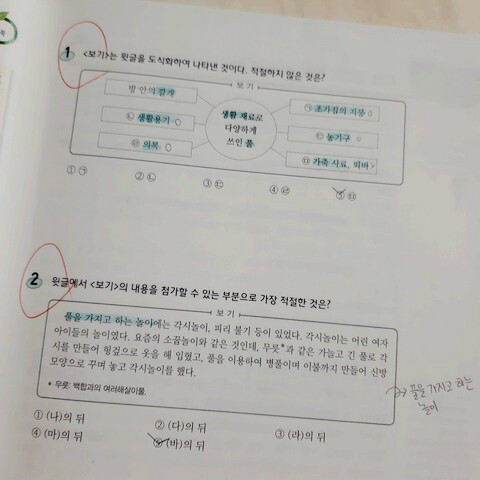 1 <보기>는 윗글을 도식화하여 나타낸 것이다. 적절하지 않은 것은?
보기
방 안의 깔개
㉠ 초가집의 지붕
㉡ 생활용기
생활 재료로
다양하게
쓰인 풀
㉢ 농기구
㉣ 의복
㉤ 가축 사료, 퇴비
① ㉠ ② ㉡ ③ ㉢ ④ ㉣ ⑤ ㉤
2 윗글에서 <보기>의 내용을 첨가할 수 있는 부분으로 가장 적절한 것은?
보기
풀을 가지고 하는 놀이에는 각시놀이, 피리 불기 등이 있었다. 각시놀이는 어린 여자
아이들의 놀이였다. 요즘의 소꿉놀이와 같은 것인데, 무릇*과 같은 가늘고 긴 풀로 각
시를 만들어 헝겊으로 옷을 해 입혔고, 풀을 이용하여 병풀이며 이불까지 만들어 신방
모양으로 꾸며 놓고 각시놀이를 했다.
* 무릇: 백합과의 여러해살이풀.
① (나)의 뒤 ② (다)의 뒤 ③ (라)의 뒤
④ (마)의 뒤 ⑤ (바)의 뒤
풀을 가지고 하는
놀이